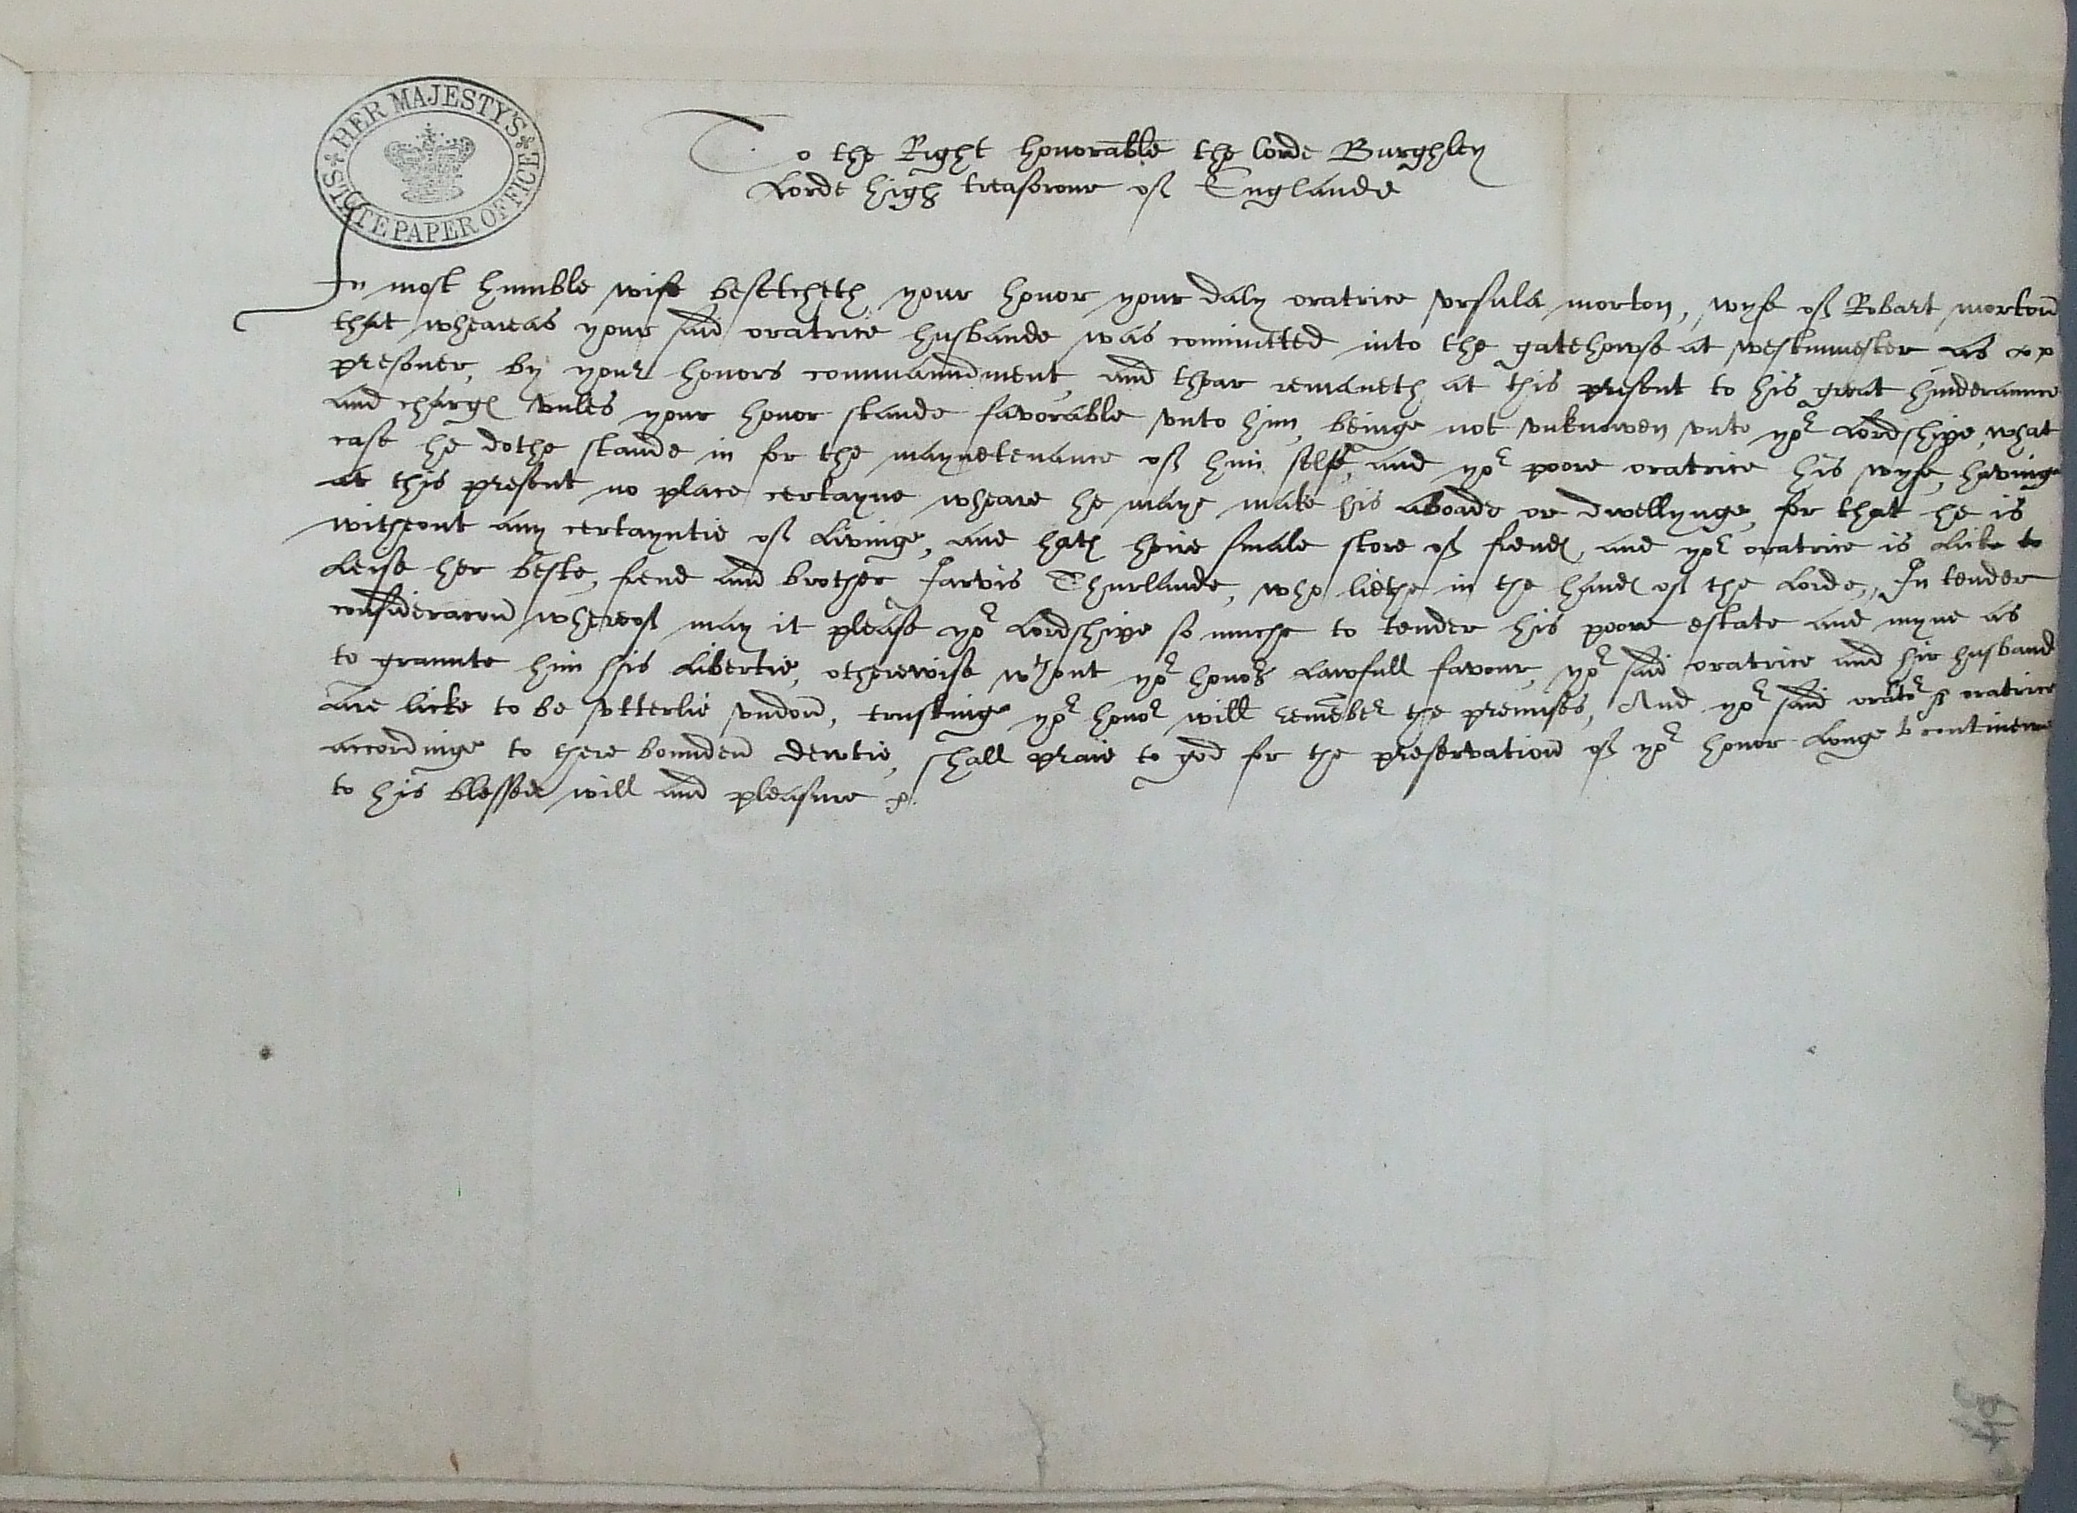 HER MAJESTY'S STATE PAPER OFFICE
To the Right honorable the lorde Burghley
Lorde high treasorour of Englande
In most humble wise besetcheth your honor your daly oratrice vrsula morton, wyfe of Robart morton
that wheareas your said oratrice husbande was committed into the gatehowse at westminester as a
presoner, by your honors commaundment, and thear remaneth at this present to his great hinderaunce
and charges vnles your honor stande favorable vnto him, beinge not vnknowen vnto yor Lordshipe, what
case he dothe stande in for the maynetenance of him selfe, and yor poore oratrice his wyfe, havinge
at this present no place certayne wheare he maye make his aboade or dwellynge, for that he is
witheout any certayntie of Livinge, and hath heire smale store of frends, and yor oratrice is Like to
Leise her beste, frend and brother Jarvis Thurlande, who liethe in the hands of the Lorde,, In tender
consideracon whereof may it please yor Lordshipe so muche to tender his poore estate and myne as
to graunte him his Libertie, otherewise wthout yor honors Lawfull favour, yor said oratrice and hir husband
are licke to be vtterlie vndon, trustinge yor honor will remember the premises, And yor said orator & oratrice
accordinge to there bounden dewtie, shall praie to god for the preservation of yor honor Longe to continewe
to his blessed will and pleasure